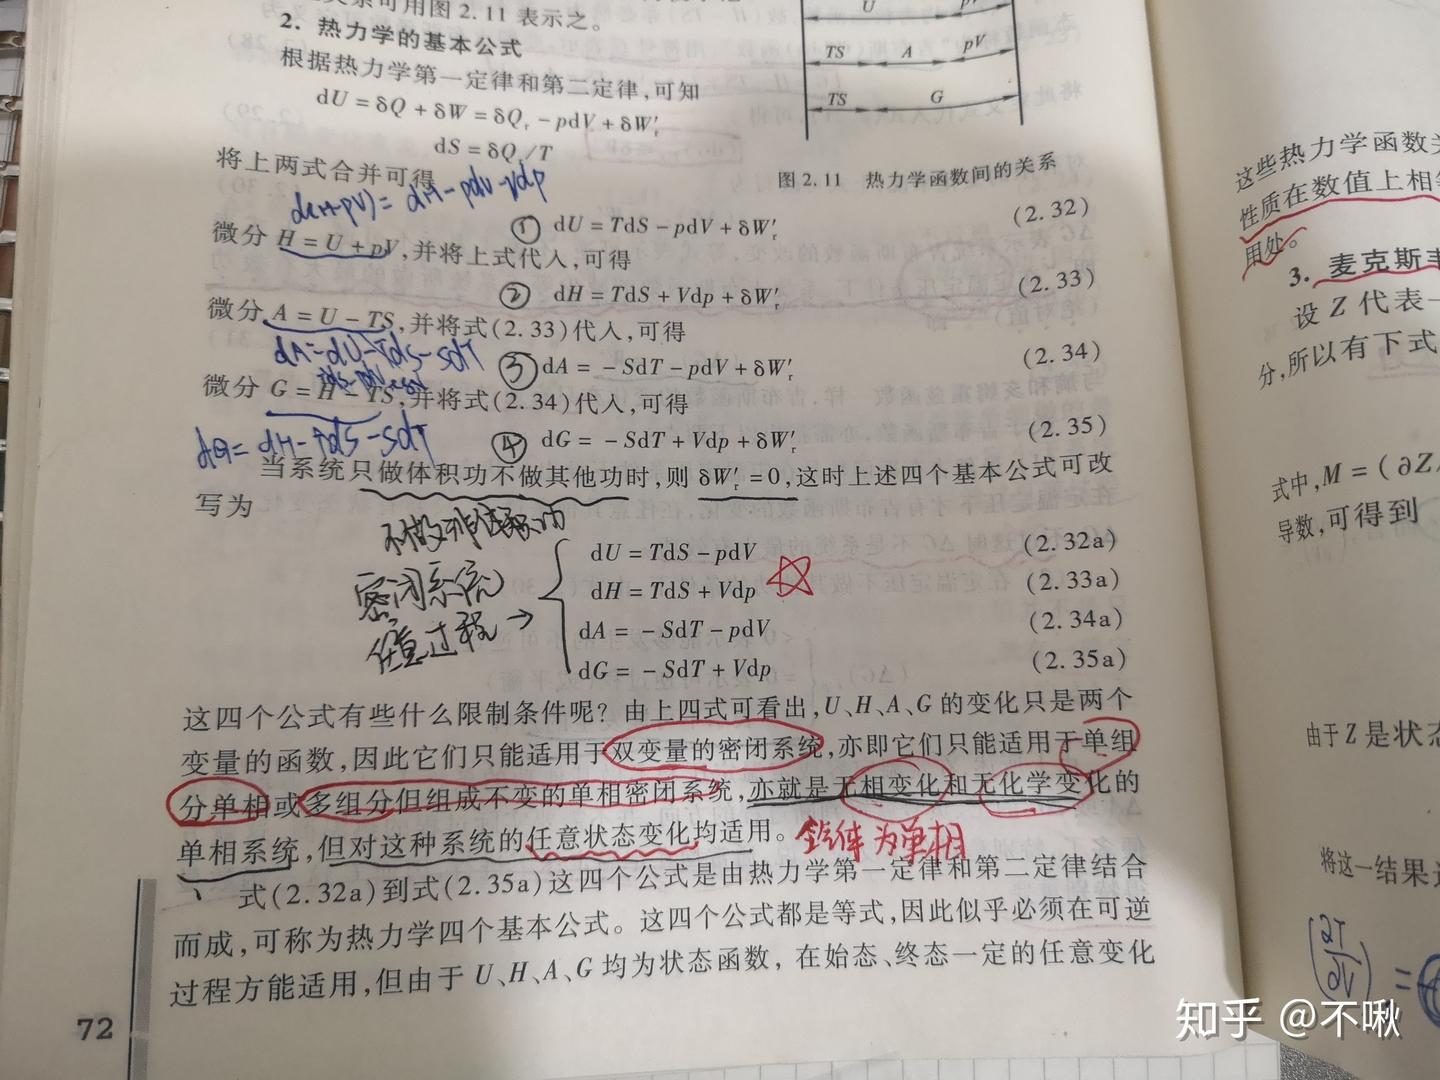 关系可用图2.11表示之。
2. 热力学的基本公式
根据热力学第一定律和第二定律,可知
dU = δQ + δW = δQᵣ - pdV + δW′ᵣ
dS = δQᵣ/T
将上两式合并可得
d(H-pV) = dH - pdV - Vdp
① dU = TdS - pdV + δW′ᵣ (2.32)
微分 H = U + pV,并将上式代入,可得
② dH = TdS + Vdp + δW′ᵣ (2.33)
微分 A = U - TS,并将式(2.33)代入,可得
dA = dU - TdS - SdT
③ dA = - SdT - pdV + δW′ᵣ (2.34)
微分 G = H - TS,并将式(2.34)代入,可得
dG = dH - TdS - SdT
④ dG = - SdT + Vdp + δW′ᵣ (2.35)
当系统只做体积功不做其他功时,则 δW′ᵣ = 0,这时上述四个基本公式可改
写为
不做非体积功
密闭系统
任意过程 →
dU = TdS - pdV (2.32a)
dH = TdS + Vdp (2.33a)
dA = - SdT - pdV (2.34a)
dG = - SdT + Vdp (2.35a)
这四个公式有些什么限制条件呢? 由上四式可看出,U、H、A、G 的变化只是两个
变量的函数,因此它们只能适用于双变量的密闭系统,亦即它们只能适用于单组
分单相或多组分但组成不变的单相密闭系统,亦就是无相变化和无化学变化的
单相系统,但对这种系统的任意状态变化均适用。
气体为单相
式(2.32a)到式(2.35a)这四个公式是由热力学第一定律和第二定律结合
而成,可称为热力学四个基本公式。这四个公式都是等式,因此似乎必须在可逆
过程方能适用,但由于 U、H、A、G 均为状态函数, 在始态、终态一定的任意变化
72
U pV
TS A pV
TS G
图2.11 热力学函数间的关系
这些热力学函数
性质在数值上相
用处。
3. 麦克斯韦
设 Z 代表一
分,所以有下式
式中,M = (∂Z/
导数,可得到
由于 Z 是状态
将这一结果
(∂T/∂V) =
知乎 @不啾